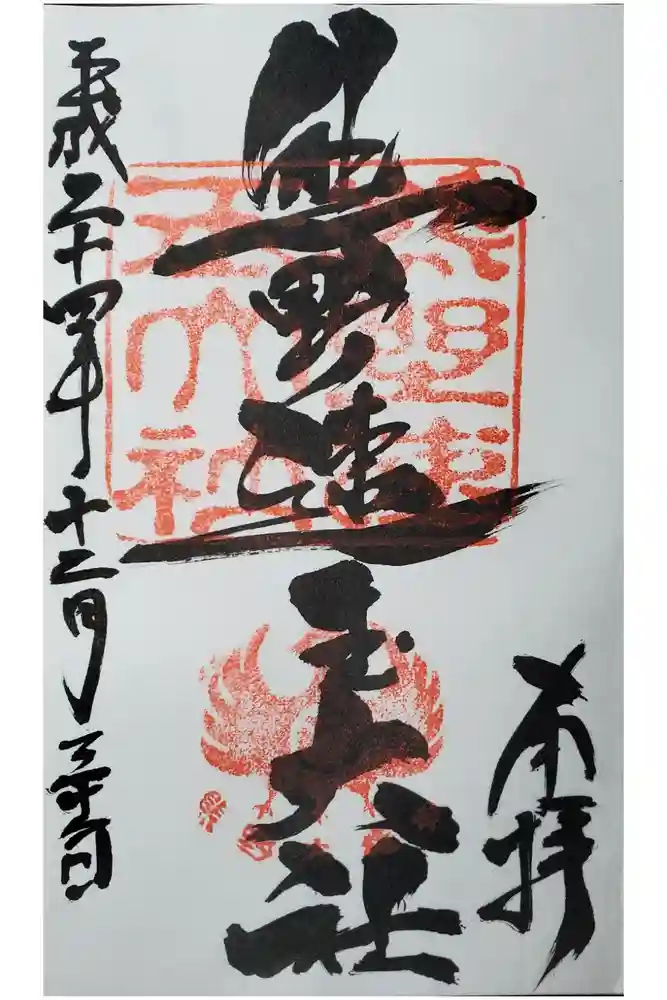 奉拝
熊野速玉大社
平成二十四年十二月三十一日
熊野速
玉大社